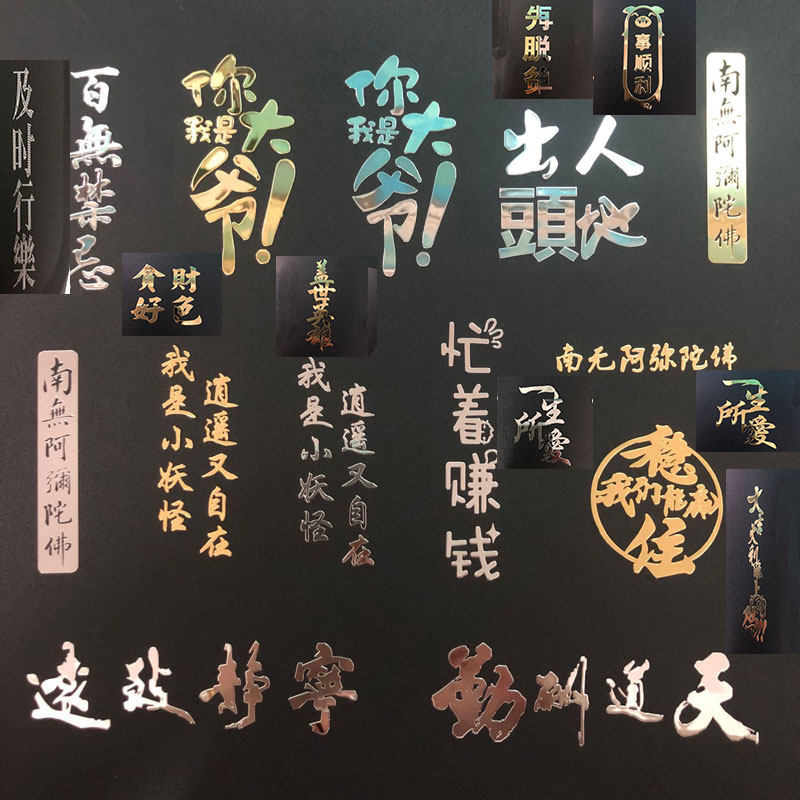 及时行樂
百無禁忌
你
我是大
爷!
你
我是大
爷!
出人
頭地
事顺利
南無阿彌陀佛
貪財
好色
盖世英雄
南無阿彌陀佛
我是小妖怪
逍遥又自在
我是小妖怪
逍遥又自在
忙着赚钱
南无阿弥陀佛
一生
所愛
一生
所愛
稳
我们能赢
住
寧静致遠
天道酬勤